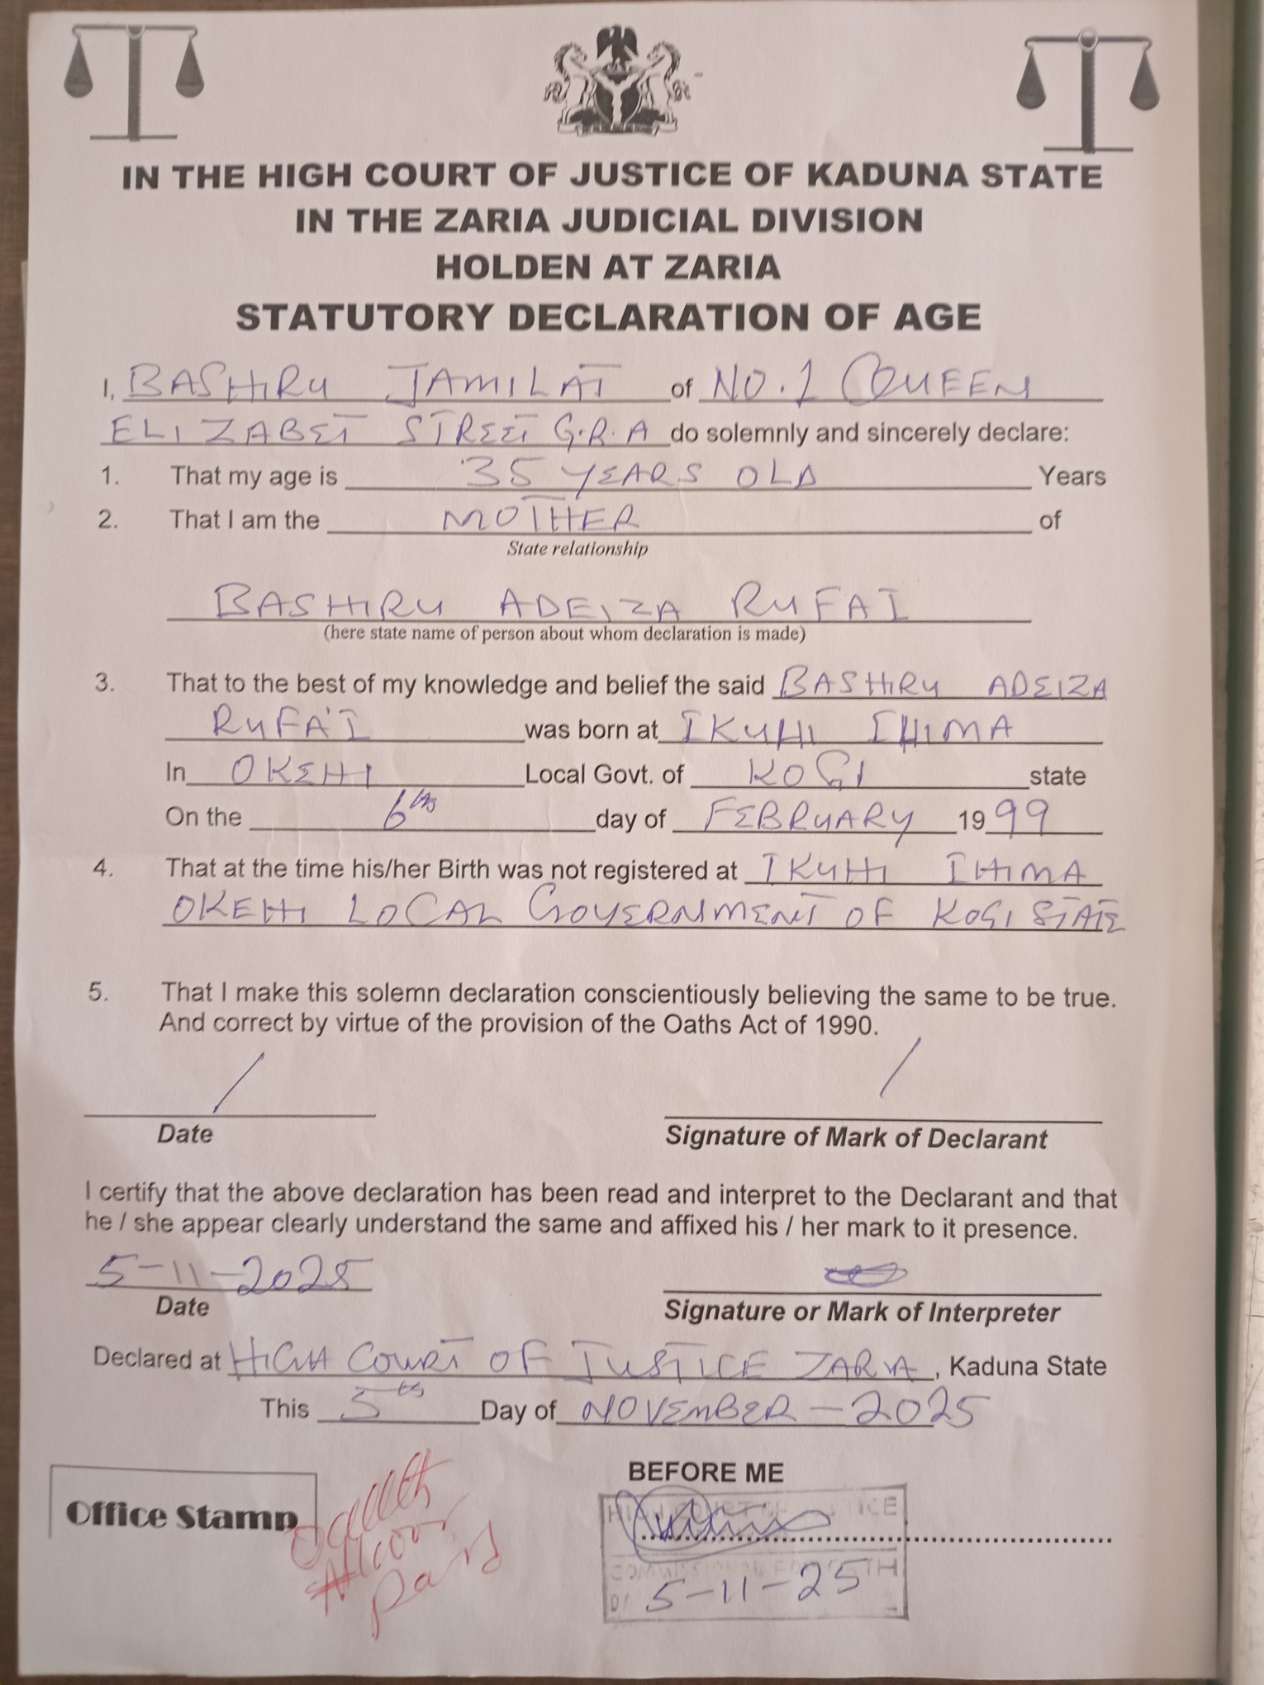 IN THE HIGH COURT OF JUSTICE OF KADUNA STATE
IN THE ZARIA JUDICIAL DIVISION
HOLDEN AT ZARIA
STATUTORY DECLARATION OF AGE
I, BASHIRU JAMILAT of NO. 1 QUEEN
ELIZABET STREET G.R.A do solemnly and sincerely declare:
1. That my age is 35 YEARS OLD Years
2. That I am the MOTHER of
State relationship
BASHIRU ADEIZA RUFAI
(here state name of person about whom declaration is made)
3. That to the best of my knowledge and belief the said BASHIRU ADEIZA
RUFA'I was born at IKUHI IHIMA
In OKEHI Local Govt. of KOGI state
On the 6th day of FEBRUARY 1999
4. That at the time his/her Birth was not registered at IKUHI IHIMA
OKEHI LOCAL GOVERNMENT OF KOGI STATE
5. That I make this solemn declaration conscientiously believing the same to be true.
And correct by virtue of the provision of the Oaths Act of 1990.
Date Signature of Mark of Declarant
I certify that the above declaration has been read and interpret to the Declarant and that
he / she appear clearly understand the same and affixed his / her mark to it presence.
5-11-2025
Date Signature or Mark of Interpreter
Declared at HIGH COURT OF JUSTICE ZARIA, Kaduna State
This 5th Day of NOVEMBER - 2025
BEFORE ME
Office Stamp
5-11-25